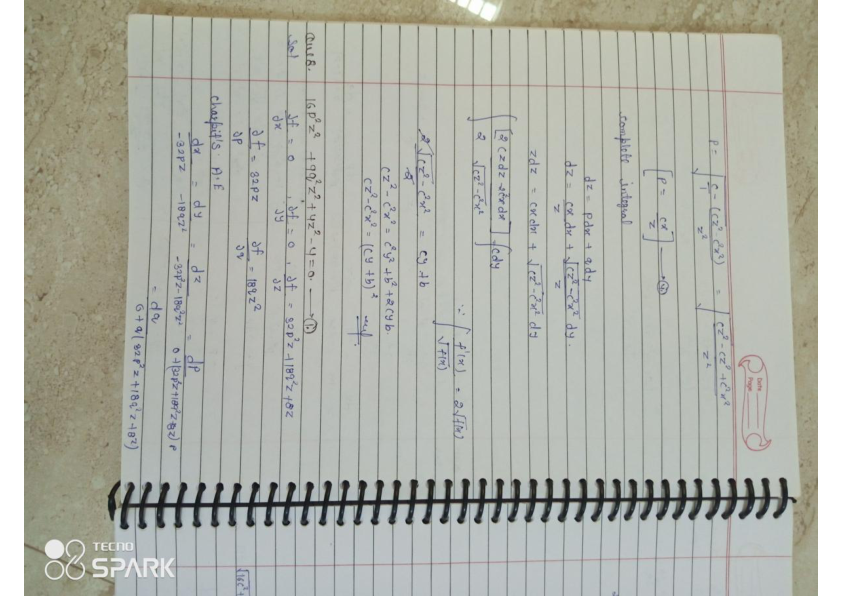 Date
Page
p = √(c/1 - c(cz² - c²x²)/z²) = √((cz² - cz² + c²x²)/z²)
[p = cx/z] — (4)
complete integral
dz = pdx + qdy
dz = cx/z dx + √(cz² - c²x²)/z dy.
zdz = cxdx + √(cz² - c²x²) dy
∫ [2czdz - 2c²xdx] / 2√(cz² - c²x²) ∫cdy
∵ ∫ f'(x)/√f(x) = 2√f(x)
2√(cz² - c²x²)/2 = cy + b
cz² - c²x² = c²y² + b² + 2cyb.
cz² - c²x² = (cy + b)²
Que 16p²z² + 9q²z² + 4z² - 4 = 0. — (1)
Sol ∂f/∂x = 0 , ∂f/∂y = 0 , ∂f/∂z = 32p²z + 18q²z + 8z
∂f/∂p = 32pz² ∂f/∂q = 18qz²
charpit's A.E
dx/-32pz = dy/-18qz² = dz/-32p²z²-18q²z² = dp/0+(32p²z+18q²z+8z)p
= dq/0+q(32p²z+18q²z+8z)
TECNO
SPARK